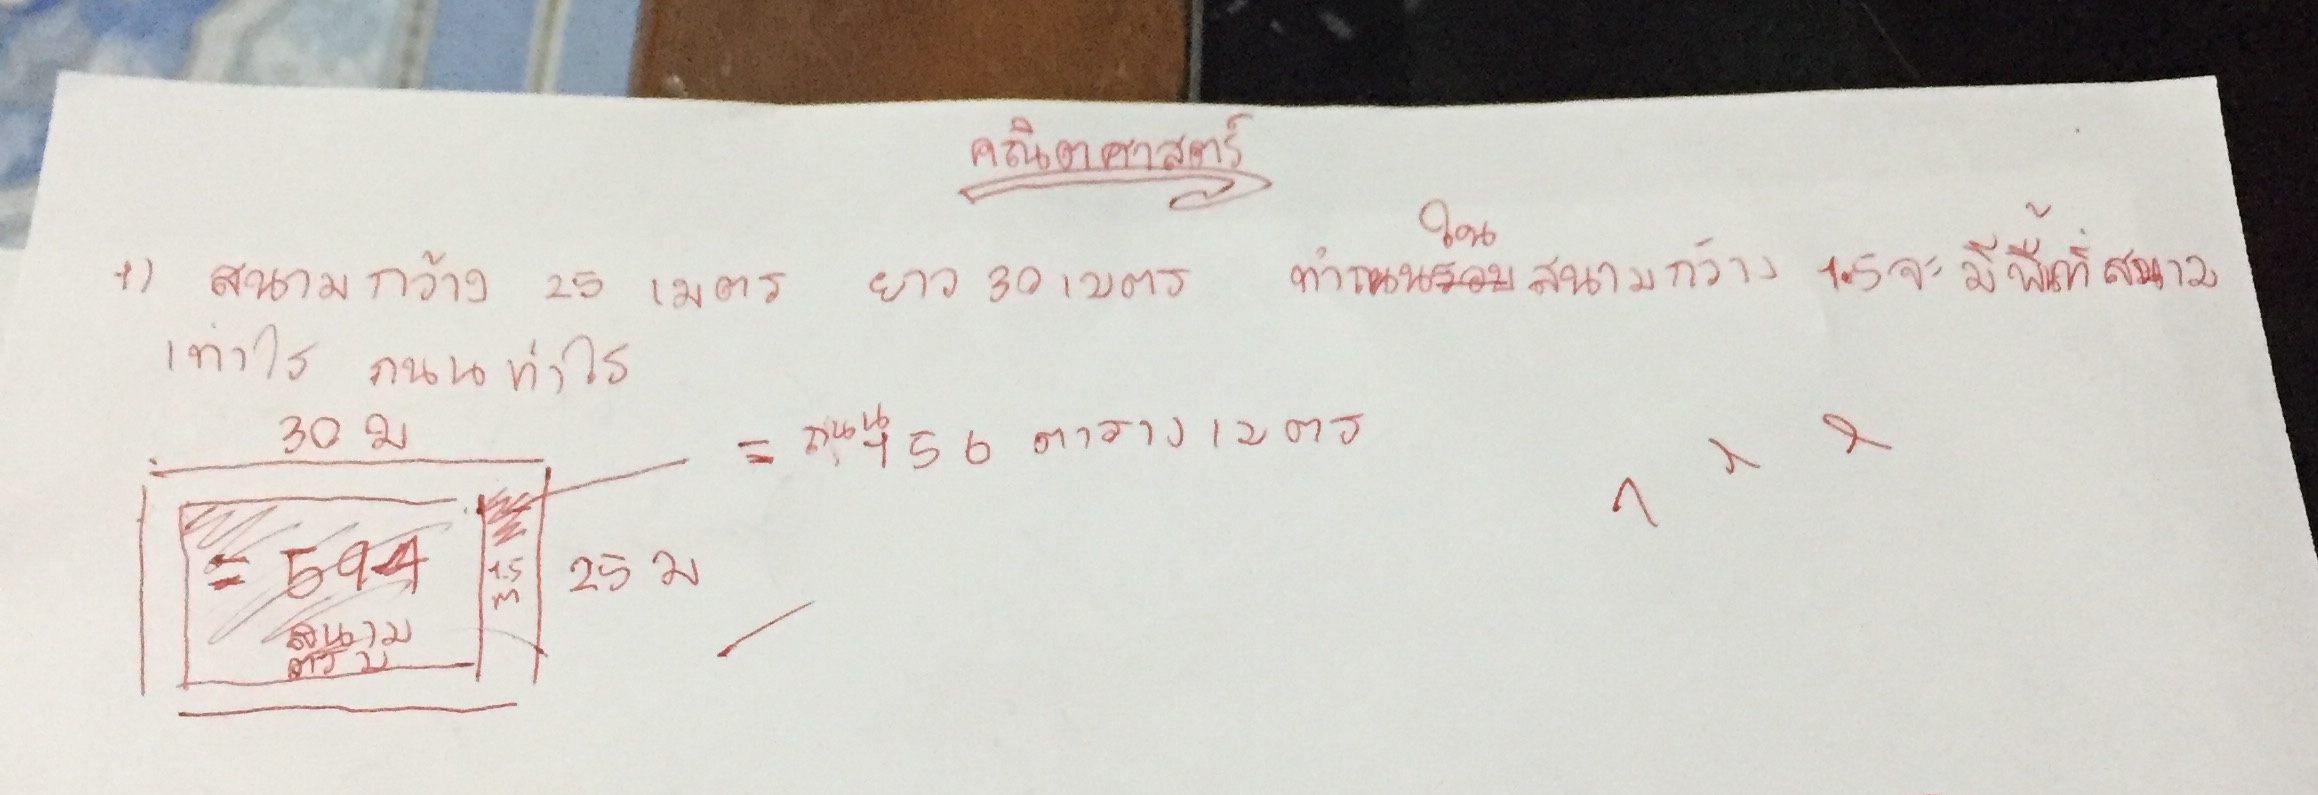 คณิตศาสตร์
ใน
1) สนามกว้าง 25 เมตร ยาว 30 เมตร ทำถนนรอบสนามกว้าง 1.5 จะมีพื้นที่สนาม
เท่าไร ถนนเท่าไร
30 ม
= ถนน 156 ตารางเมตร
= 594
สนาม
ตร ม
1.5
m
25 ม